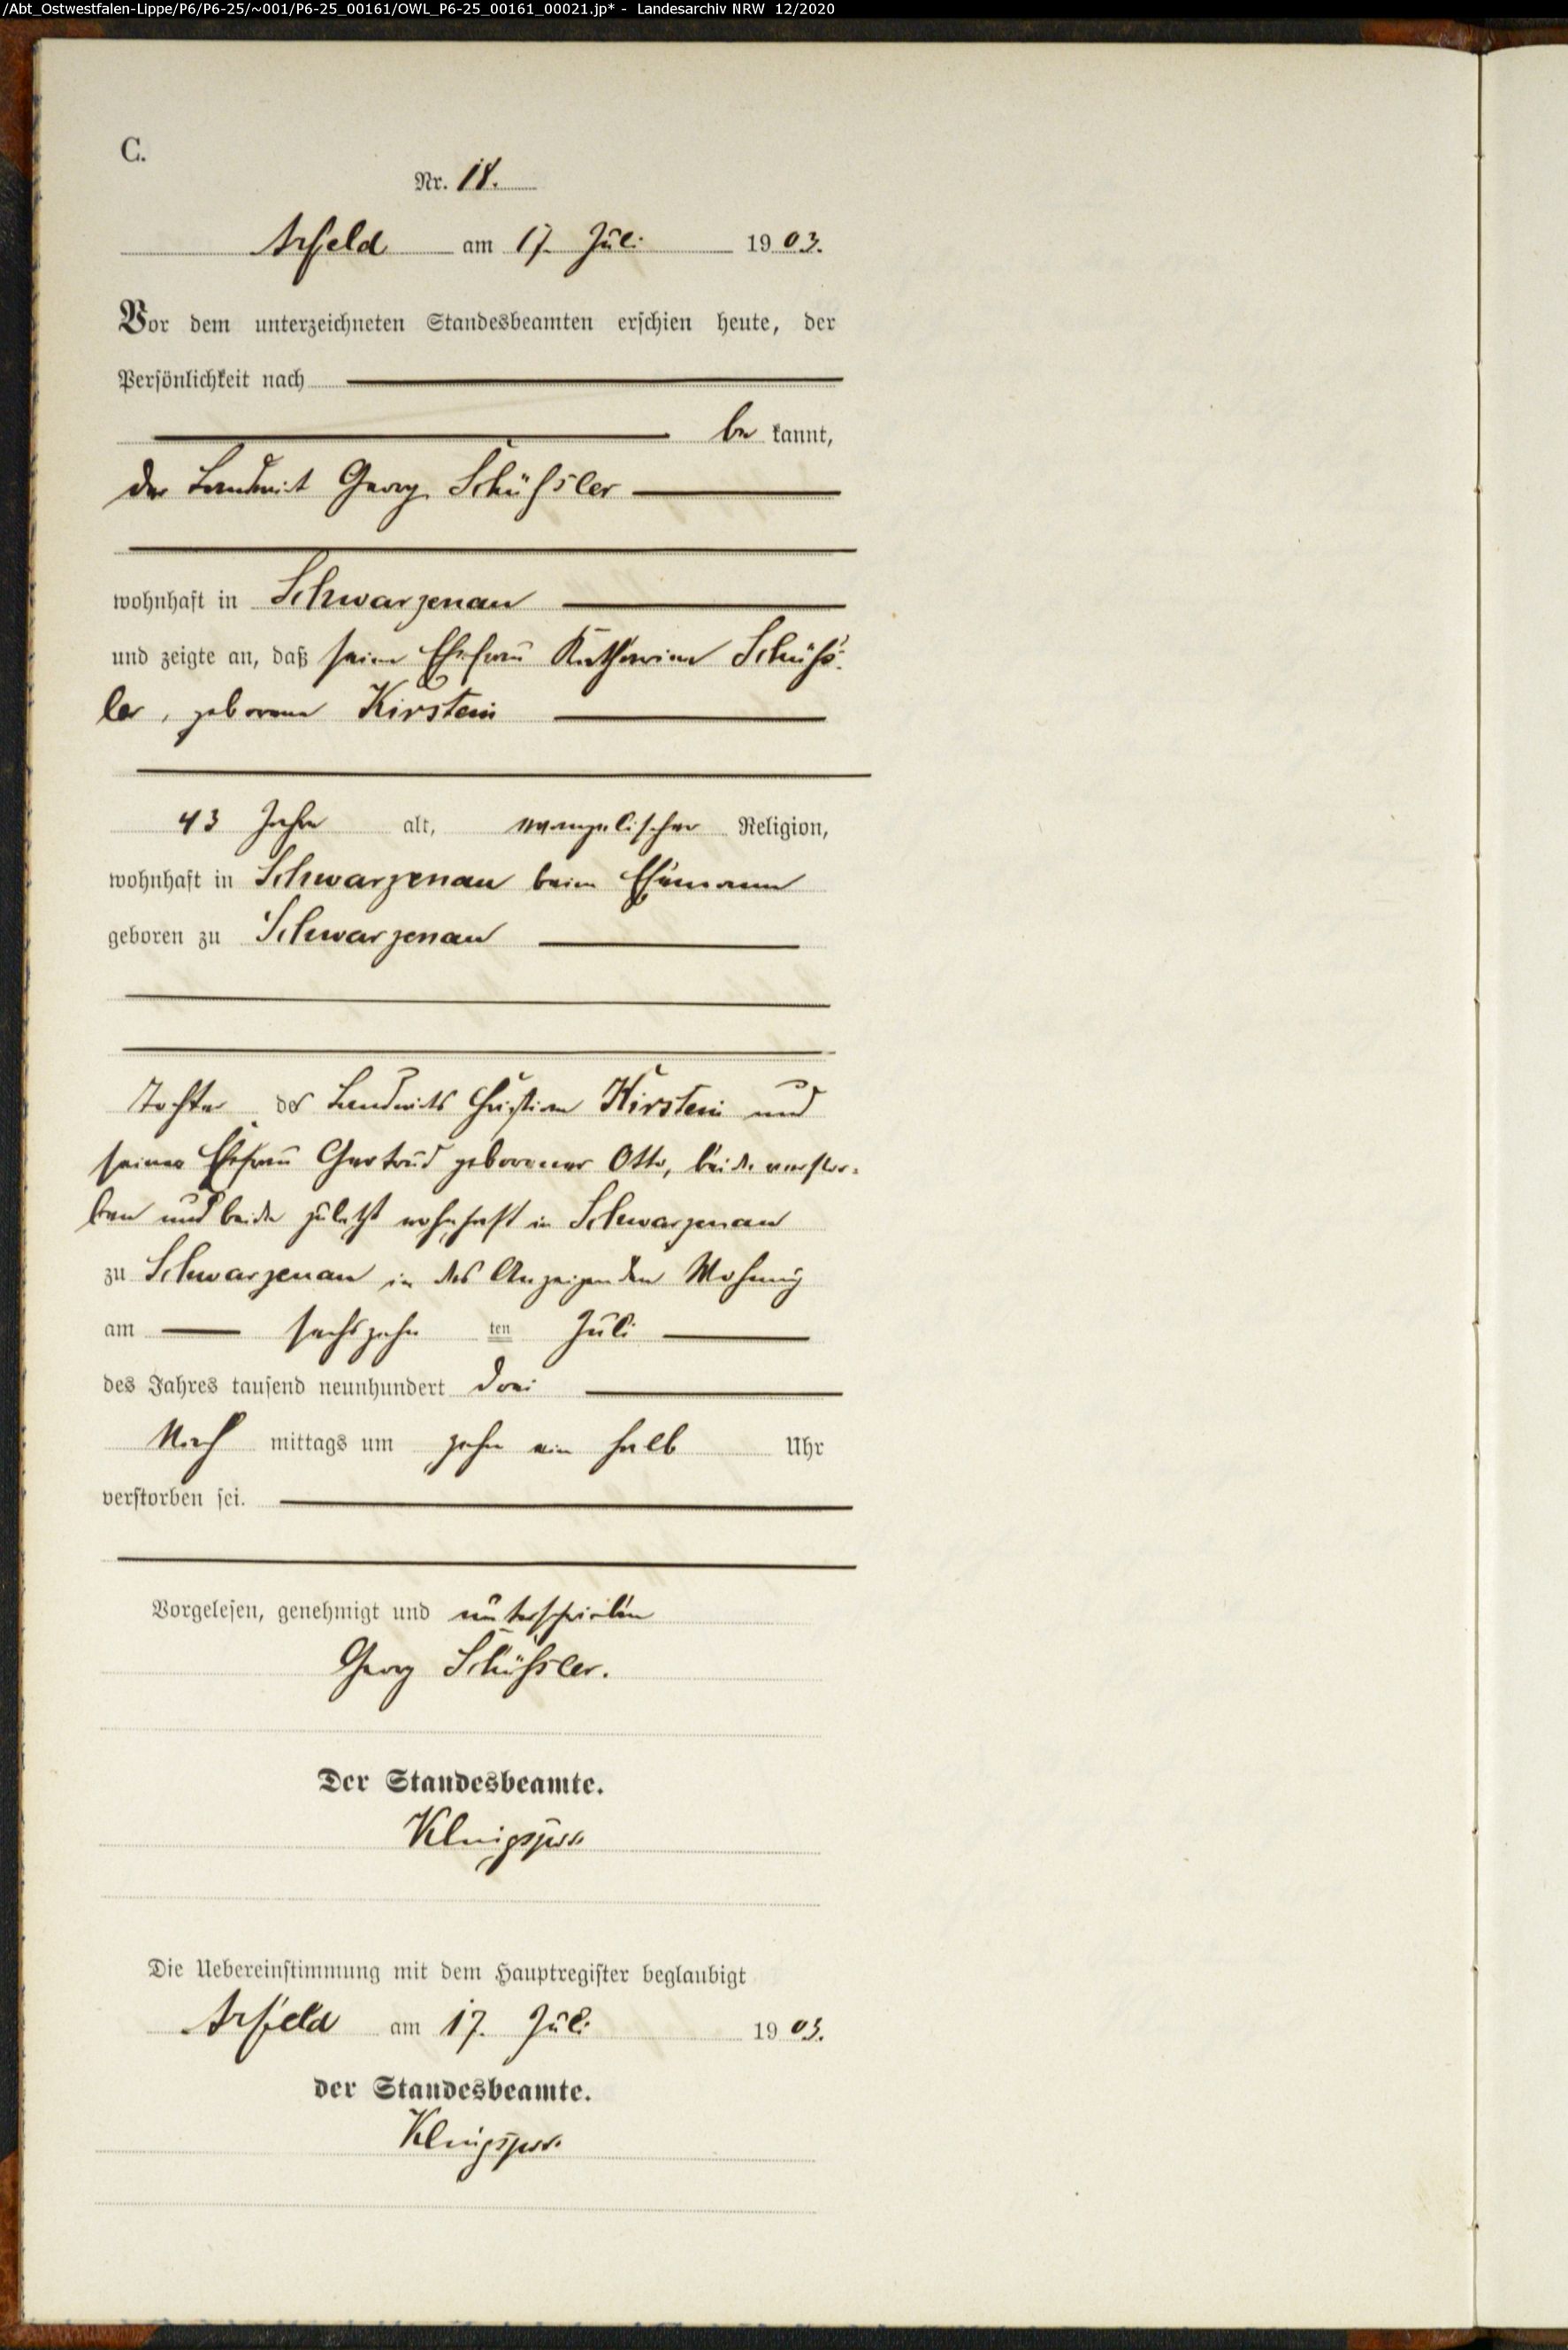 /Abt_Ostwestfalen-Lippe/P6/P6-25/~001/P6-25_00161/OWL_P6-25_00161_00021.jp* - Landesarchiv NRW 12/2020
C.
Nr. 18.
Arfeld am 17. Juli 1903.
Vor dem unterzeichneten Standesbeamten erschien heute, der
Persönlichkeit nach
be kannt,
der Landwirt Georg Schüssler
wohnhaft in Schwarzenau
und zeigte an, daß seine Ehefrau Katharine Schüss-
ler, geborene Kirstein
43 Jahre alt, evangelischer Religion,
wohnhaft in Schwarzenau beim Ehemann
geboren zu Schwarzenau
Tochter des Landwirts Christian Kirstein und
seiner Ehefrau Gertrud geborener Otto, beide verstor-
ben und beide zuletzt wohnhaft in Schwarzenau
zu Schwarzenau in des Anzeigenden Wohnung
am sechszehn ten Juli
des Jahres tausend neunhundert drei
Nach mittags um zehn ein halb Uhr
verstorben sei.
Vorgelesen, genehmigt und unterschrieben
Georg Schüssler.
Der Standesbeamte.
Klingspor
Die Uebereinstimmung mit dem Hauptregister beglaubigt
Arfeld am 17. Juli 1903.
der Standesbeamte.
Klingspor